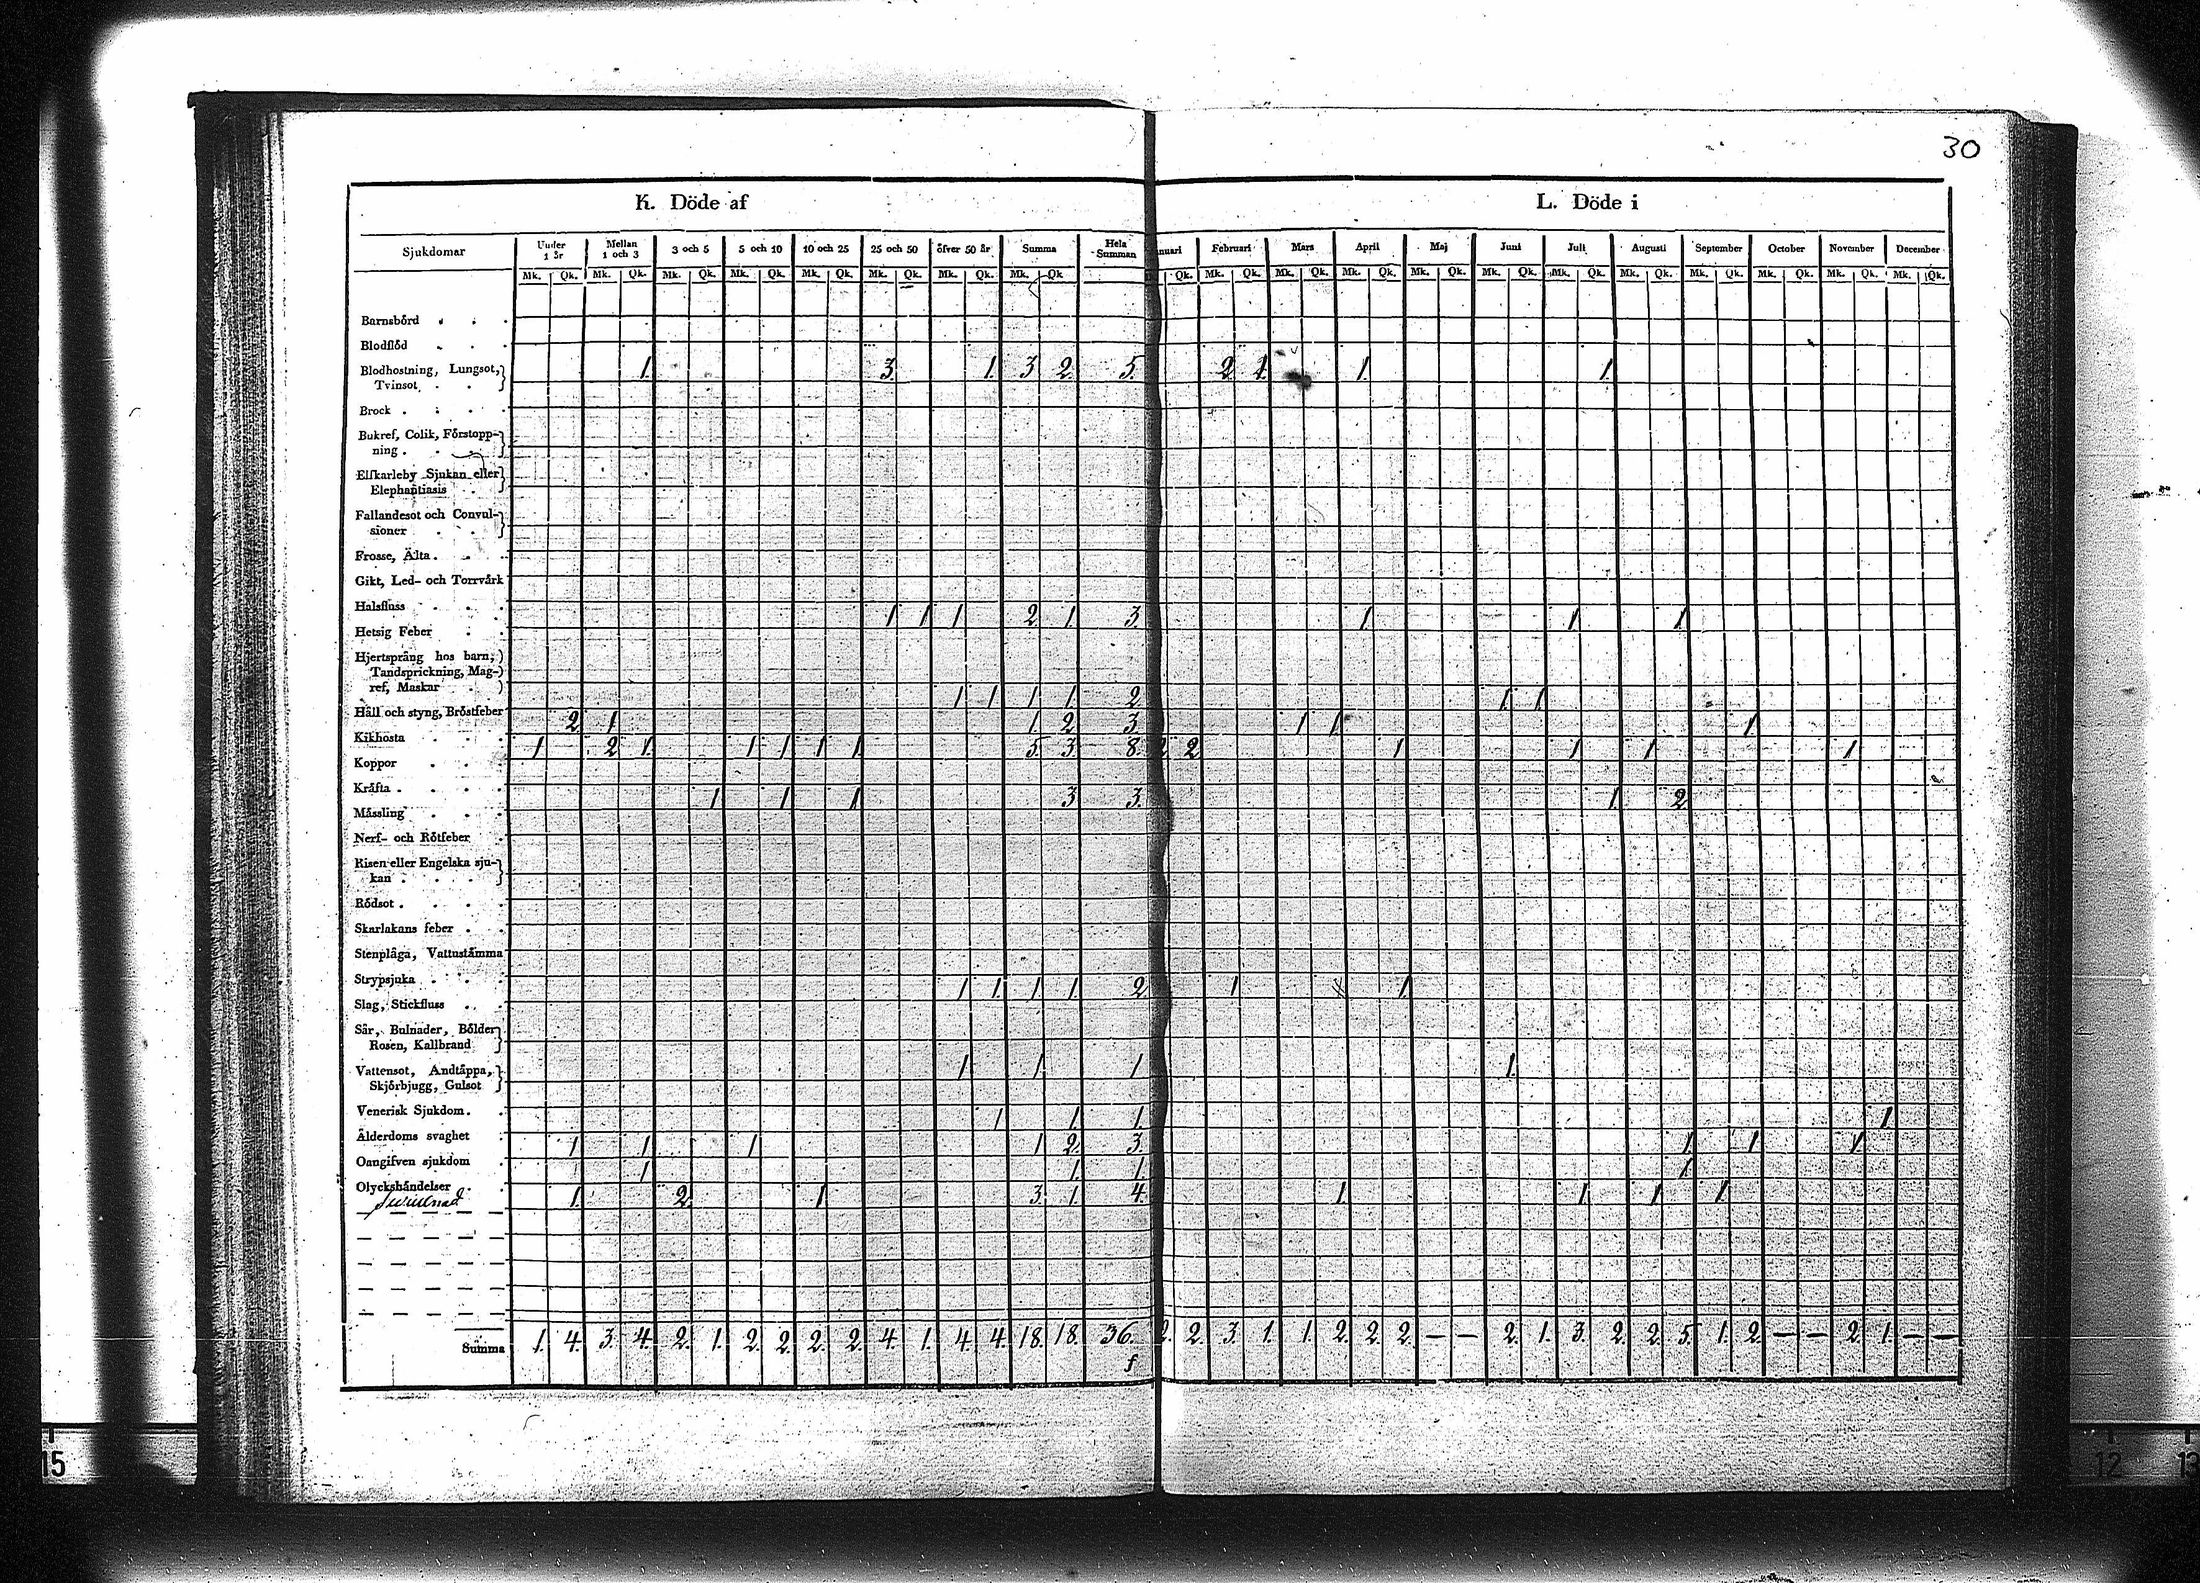 30
K. Döde af
L. Döde i
Sjukdomar Under 1 år Mellan 1 och 3 3 och 5 5 och 10 10 och 25 25 och 50 öfver 50 år Summa Hela Summan nuari Februari Mars April Maj Juni Juli Augusti September October November December
Mk. Qk. Mk. Qk. Mk. Qk. Mk. Qk. Mk. Qk. Mk. Qk. Mk. Qk. Mk. Qk. Qk. Mk. Qk. Mk. Qk. Mk. Qk. Mk. Qk. Mk. Qk. Mk. Qk. Mk. Qk. Mk. Qk. Mk. Qk. Mk. Qk. Mk. Qk.
Barnsbörd
Blodflöd
Blodhostning, Lungsot, 1. 3. 1. 3 2. 5. 2. 1. 1. 1.
Tvinsot
Brock
Bukref, Colik, Förstopp-
ning
Elfkarleby Sjukan eller
Elephantiasis
Fallandesot och Convul-
sioner
Frosse, Älta
Gikt, Led- och Torrvärk
Halsfluss
1 1 1 2. 1. 3. 1. 1. 1.
Hetsig Feber
Hjertsprång hos barn,
Tandsprickning, Mag-
ref, Maskar
1 1 1 1. 2 1. 1.
Håll och styng, Bröstfeber
2. 1 1. 2 3. 1 1 1
Kikhosta
1. 2 1. 1 1 1 1. 5 3 8. 2 2 1 1 1 1
Koppor
Kräfta
1 1 1 3 3. 1. 2.
Mässling
Nerf- och Rötfeber
Risen eller Engelska sju-
kan
Rödsot
Skarlakans feber
Stenplåga, Vattustämma
Strypsjuka
1 1. 1 1. 2 1 1.
Slag, Stickfluss
Sår, Bulnader, Bölder
Rosen, Kallbrand
Vattensot, Andtäppa, 1. 1. 1 1.
Skjörbjugg, Gulsot
Venerisk Sjukdom
1 1. 1. 1
Ålderdoms svaghet
1 1 1 1 2. 3. 1. 1 1
Oangifven sjukdom
1 1. 1. 1
Olyckshändelser
1. 2. 1 3. 1. 4. 1. 1 1 1
Summa 1. 4. 3. 4. 2. 1. 2. 2. 2. 2. 4. 1. 4. 4. 18. 18. 36. 2. 2. 3. 1. 1. 2. 2. 2. — — 2. 1. 3. 2. 2. 5. 1. 2. — — 2. 1. — —
15
12
13